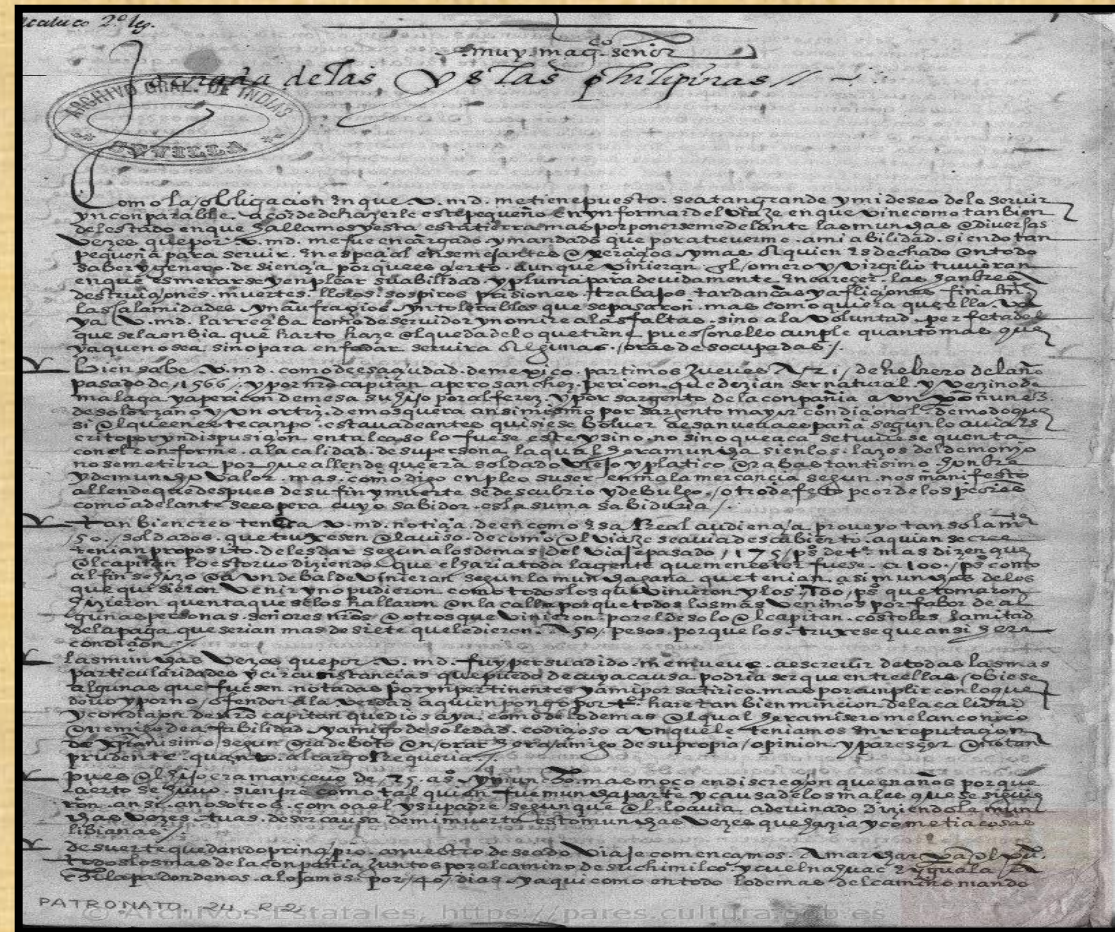 muy magco señor
Jornada de las Yslas philipinas
ARCHIVO GRAL. DE INDIAS
SEVILLA
Como la obligacion en que v. md. me tiene puesto. sea tan grande y mi deseo de lo servir
ynconparable. acorde de hazerle este pequeño en ynformar del viaze en que vine como tanbien
del estado en que hallamos y esta esta tierra mas por ponerseme delante las munchas e diversas
vezes que por v. md. me fue encargado y mandado que por atreverme. a mi abilidad. siendo tan
pequeña para servir. en espeçial en semejantes y mas a quien es dechado en todo
saber y genero de siençia porque es çierto. aunque vinieran el omero y virgilio tuvieran
en que esmerarse y enplear su abilidad y pluma para devidamente las grandes
destruiçiones. muertes. llotos. sospiros prisiones. trabajos tardança y afliçiones finalmte
las calamidades y naufragios. yntolerables que se pasaron. mas como quiera que ella. sea
ya v. md. la rreçiba como de servidor y no mire a las faltas. sino a la voluntad. perfeta de
que se la enbia. que harto haze el que da de lo que tiene. pues con ello cunple quanto mas que
ya que no sea sino para enfadar servira algunas. horas desocupadas
bien sabe. v. md. como de esa çiudad. de mexico. partimos Jueves a 21 de hebrero del año
pasado de 1566. y por nro capitan a pero sanchez pericon. que dezian ser natural y vezino de
malaga y a pericon de mesa su hijo por alferez. y por sargento de la conpañia a un nuñez
de solorzano y un ortiz. de mosquera ansimismo por sargento mayor condiçional. de modo que
si el que en este canpo. estava de antes quisiese bolver a esa nueva españa segun lo avia
crito por yndispusiçion. en tal caso lo fuese este y sino. no sino que aca se tuviese quenta
con el conforme. a la calidad. de su persona. la qual hera muncha sien los. lazos del demonio
no se metiera por que allende que era soldado viejo y platico era bastantisimo honbre
y de muncho valor. mas. como digo enpleo su ser en mala mercançia segun. nos manifesto
allende que despues de su fin y muerte se descubrio y debulgo. otro defeto peor de los peores
como adelante se espera cuyo sabidor. es la suma sabiduria
tanbien creo terna v. md. notiçia de en como esa Real audiençia proveyo tan solamte
150. soldados. que truxesen el aviso. de como el viaze se avia descubierto. a quien se cree
tenian proposito. de les dar segun a los demas del viaje pasado 175 ps de tº. mas dizen que
el capitan lo estorvo diziendo. que el haria toda la gente que menester fuese. a 100. ps como
al fin se hizo e aun de balde vinieran segun la muncha gana que tenian. asi munchos de los
que quisieron venir y no pudieron. como todos los que vinieron y los 100. ps que tomaron
hizieron quenta que se los hallaron en la calle porque todos los mas venimos por fabor de al
gunas personas. señores nros e otros que vinieron por el de solo el capitan. costoles la mitad
de la paga. que serian mas de siete que le dieron. a 50. pesos. porque los. truxese que ansi hera
condiçion
las munchas vezes que por v. md. fuy persuadido. me mueve. a escrevir de todas las mas
particularidades y circunstancias que puedo de cuya causa podria ser que entre ellas. obiese
algunas que fuesen. notadas por ynpertinentes y a mi por satirico. mas por cunplir con lo que
devo y por no ofender a la verdad a quien pongo por tº. hare tanbien minçion de la calidad
y condiçion de nro capitan que dios aya. como de lo demas el qual hera misero melanconico
enemigo de afabilidad. y amigo de soledad. codiçioso aunque le teniamos en rreputaçion
de xpianisimo. segun era deboto en orar. hera amigo de su propia opinion y paresçer e no tan
prudente. quanto. al cargo. se requeria
pues el hijo era mançevo de 25. aºs. y aun mas moço en discreçion que en años porque
çierto se huvo. sienpre como tal quien fue muncha parte y causa de los males que se siguie
ron. ansi. a nosotros. como a el y su padre segun que el. lo avia adevinado diziendole mun
chas vezes. tu as. de ser causa de mi muerte esto munchas vezes que hazia y cometia cosas
libianas
de suerte que dando prinçipio. a nuestro deseado viaje començamos. a marchar para el
todos los mas de la conpañia juntos por el camino de suchimilco. y cuelnahuac e yguala
alojamos. por 40 dias y aqui como en todo lo demas del camino mando
PATRONATO, 24, R.2
© Archivos Estatales, https://pares.cultura.gob.es